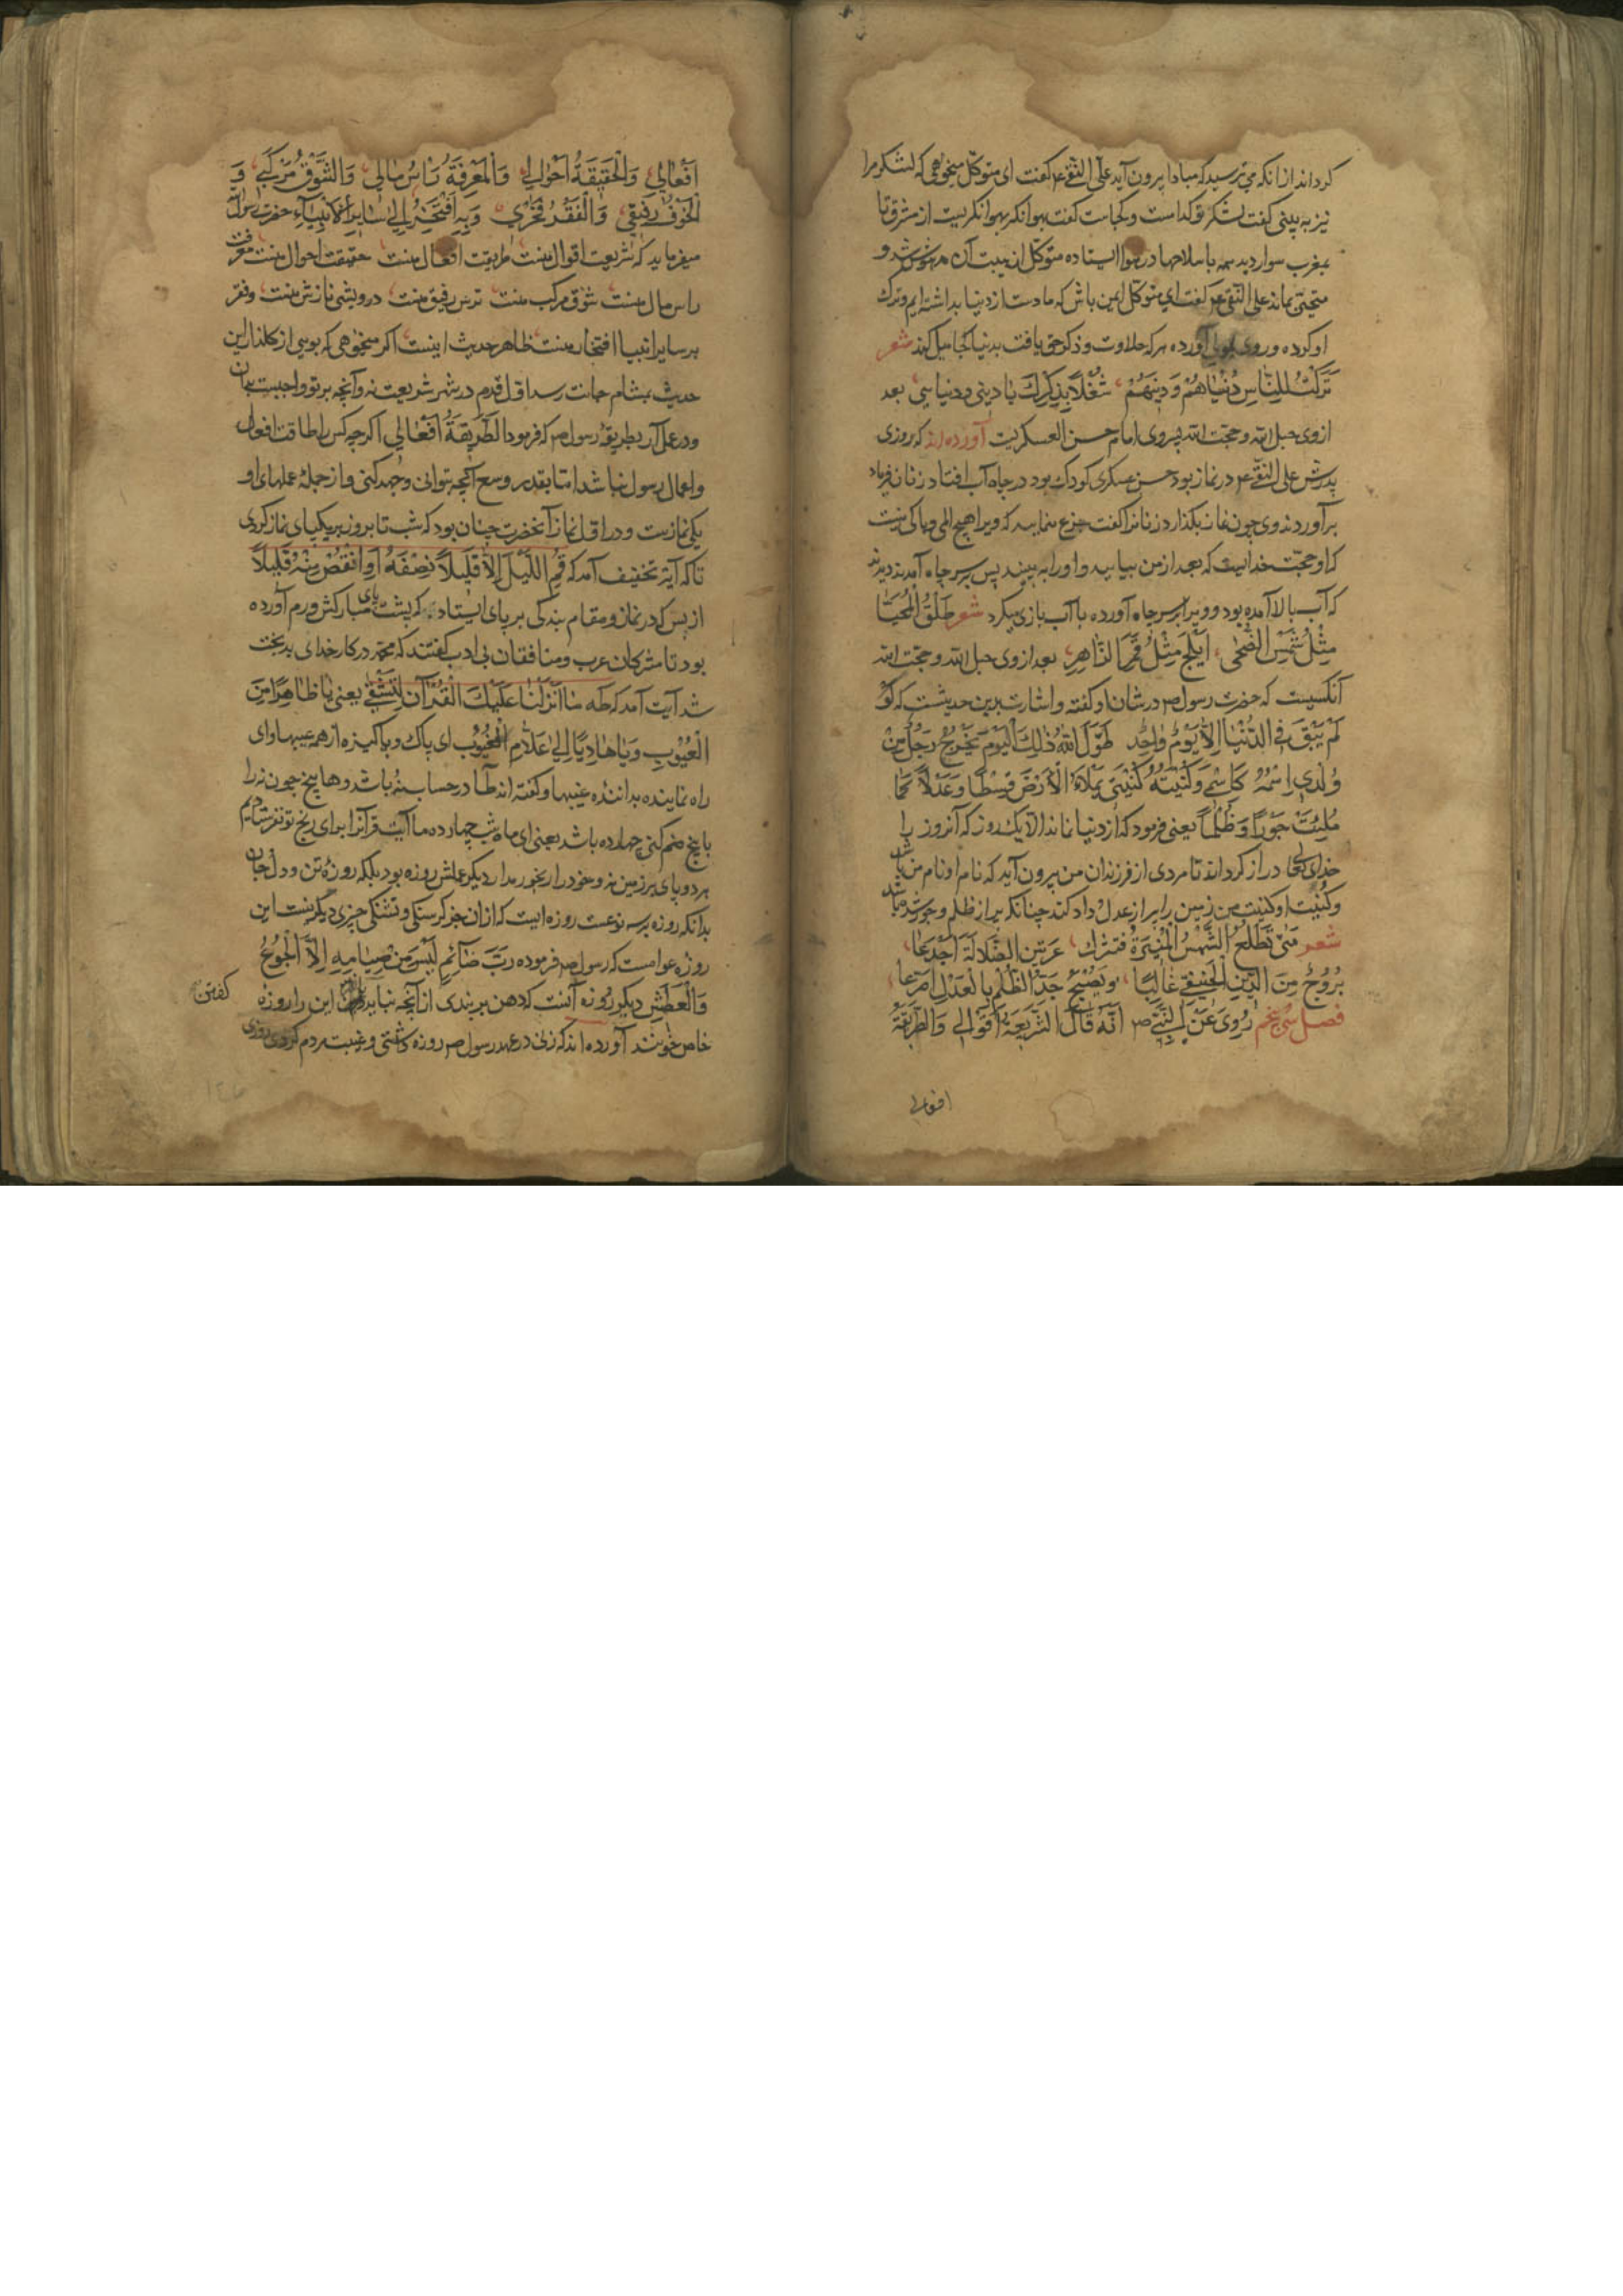 کرداند ازانکه می ترسید که مبادا بیرون آید علی النقی ع م کفت ای متوکل میخواهی که لشکر مرا
نیز به بینی کفت لشکر تو کداست و کجاست کفت بهوا نکر بهوا نکریست از مشرق تا
بمغرب سوار دید همه با سلاحها در هوا ایستاده متوکل از هیبت آن مدهوش شد و
متحیر بماند علی النقی ع م کفت ای متوکل ایمن باش که ما دست از دنیا بداشته ایم و ترک
او کرده و روی آورده هر که حلاوت ذکر حق یافت بدنیا کجا میل کند شعر
تَرَکْتُ لِلنَّاسِ دُنْیَاهُمْ وَدِینَهُمْ شُغْلاً بِذِکْرِكَ یَا دِینِی وَدُنْیَایِی بعد
ازوی حبل الله و حجت الله پسر وی امام حسن العسکریت آورده اند که روزی
پدرش علی النقی ع م در نماز بود حسن عسکری کودک بود در چاه آب افتاد زنان فریاد
برآوردند وی چون نماز بکذارد زنانرا کفت جزع منمایید که ویرا هیچ المی و باکی نیست
که او حجت خدایست که بعد از من بیایید و او را به بینید پس بسر چاه آمدند دیدند
که آب بالا آمده بود و ویرا بر سر چاه آورده با آب بازی میکرد شعر طَلْقُ الْمُحَیَّا
مِثْلُ شَمْسِ الضُّحَی اَبْلَجُ مِثْلُ قَمَرِ الزَّاهِرِ بعد ازوی حبل الله و حجت الله
آنکسیست که حضرت رسول ص در شان او کفته و اشارت برین حدیثست که لَوْ
لَمْ یَبْقَ فِی الدُّنْیَا اِلاَّ یَوْمٌ وَاحِدٌ طَوَّلَ اللهُ ذٰلِكَ الْیَوْمَ یَخْرُجُ رَجُلٌ مِنْ
وُلْدِی اِسْمُهُ کَاسْمِی وَکُنْیَتُهُ کُنْیَتِی یَمْلَاءُ الْاَرْضَ قِسْطًا وَعَدْلاً کَمَا
مُلِئَتْ جَوْرًا وَظُلْمًا یعنی فرمود که از دنیا نماند الا یک روز که آنروز را
خدای تعالی دراز کرداند تا مردی از فرزندان من بیرون آید که نام او نام من باشد
و کنیت او کنیت من زمین را پر از عدل و داد کند چنانکه پر از ظلم و جور شده باشد
شعر مَتَی تَطْلُعُ الشَّمْسُ الْمُنِیرَةُ عَرَنِینَ الضَّلَالَةِ اَجْدَعَا
بُرُوجٌ مِنَ الدِّینِ الْحَنِیفِی غَالِبًا وَیُصْبِحُ جَدُّ الظُّلْمِ بِالْعَدْلِ
فصل سی پنجم رُوِیَ عَنِ النَّبِیِّ ص اَنَّهُ قَالَ الشَّرِیعَةُ اَقْوَالِی وَالطَّرِیقَةُ
افعالی
اَفْعَالِی وَالْحَقِیقَةُ اَحْوَالِی وَالْمَعْرِفَةُ رَاْسُ مَالِی وَالشَّوْقُ مَرْکَبِی وَ
الْخَوْفُ رَفِیقِی وَالْفَقْرُ فَخْرِی وَبِهِ اَفْتَخِرُ اِلَی سَایِرِ الْاَنْبِیَآءِ حضرت رسول ص
میفرماید که شریعت اقوال منست طریقت افعال منست حقیقت احوال منست معرفت
راس مال منست شوق مرکب منست ترس رفیق منست درویشی نازش منست و فقر
بر سایر انبیا افتخار منست ظاهر حدیث اینست اکر میخوهی که بویی از کلذار این
حدیث بمشام جانت رسد اول قدم در شهر شریعت نه و آنچه بر تو واجبست بدان
و در عمل آر بطریقهٔ رسول ص که فرمود الطَّرِیقَةُ اَفْعَالِی اکرچه کس را طاقت افعال
و اعمال رسول نباشد اما بقدر و وسع آنچه توانی و جهد کنی و از جملهٔ عملهای او
یکی نمازست و در اول نماز آنحضرت چنان بود که شب تا بروز بر یکپای نماز کردی
تا که آیهٔ تخفیف آمد که قُمِ اللَّیْلَ اِلاَّ قَلِیلاً نِصْفَهُ اَوِ انْقُصْ مِنْهُ قَلِیلاً
از بس که در نماز و مقام بندکی بر پای ایستاد که پشت پای مبارکش ورم آورده
بود تا مشرکان عرب و منافقان بی ادب کفتند که محمد در کار خدای بدبخت
شد آیت آمد که طه مَا اَنْزَلْنَا عَلَیْكَ الْقُرْآنَ لِتَشْقَی یعنی یَا طَاهِرًا مِنَ
الْعُیُوبِ وَیَا هَادِیًا اِلَی عَلَّامِ الْغُیُوبِ ای پاک و پاکیزه از همه عیبها و ای
راه نماینده بداننده غیبها و کفته اند طا در حساب نه باشد و ها پنج چون نه را
با پنج ضم کنی چهارده باشد یعنی ای ماه شب چهارده ما این قرآنرا برای رنج تو نفرستادیم
هر دو پای بر زمین نه و خود را رنجور مدار دیکر عملش روزه بود بلکه روزهٔ تن و دل و جان
بدانکه روزه بر سه نوعست روزه ایست که ازان جز کرسنکی و تشنکی چیزی دیکر نیست این
روزه عوامست که رسول ص فرموده رُبَّ صَآئِمٍ لَیْسَ مِنْ صِیَامِهِ اِلاَّ الْجُوعُ
وَالْعَطَشُ دیکر روزه آنست که دهن بربندی از آنچه نباید کفتن این را روزه
خاص خوانند آورده اند که زنی در عهد رسول ص روزه داشتی و غیبت مردم کردی روزی